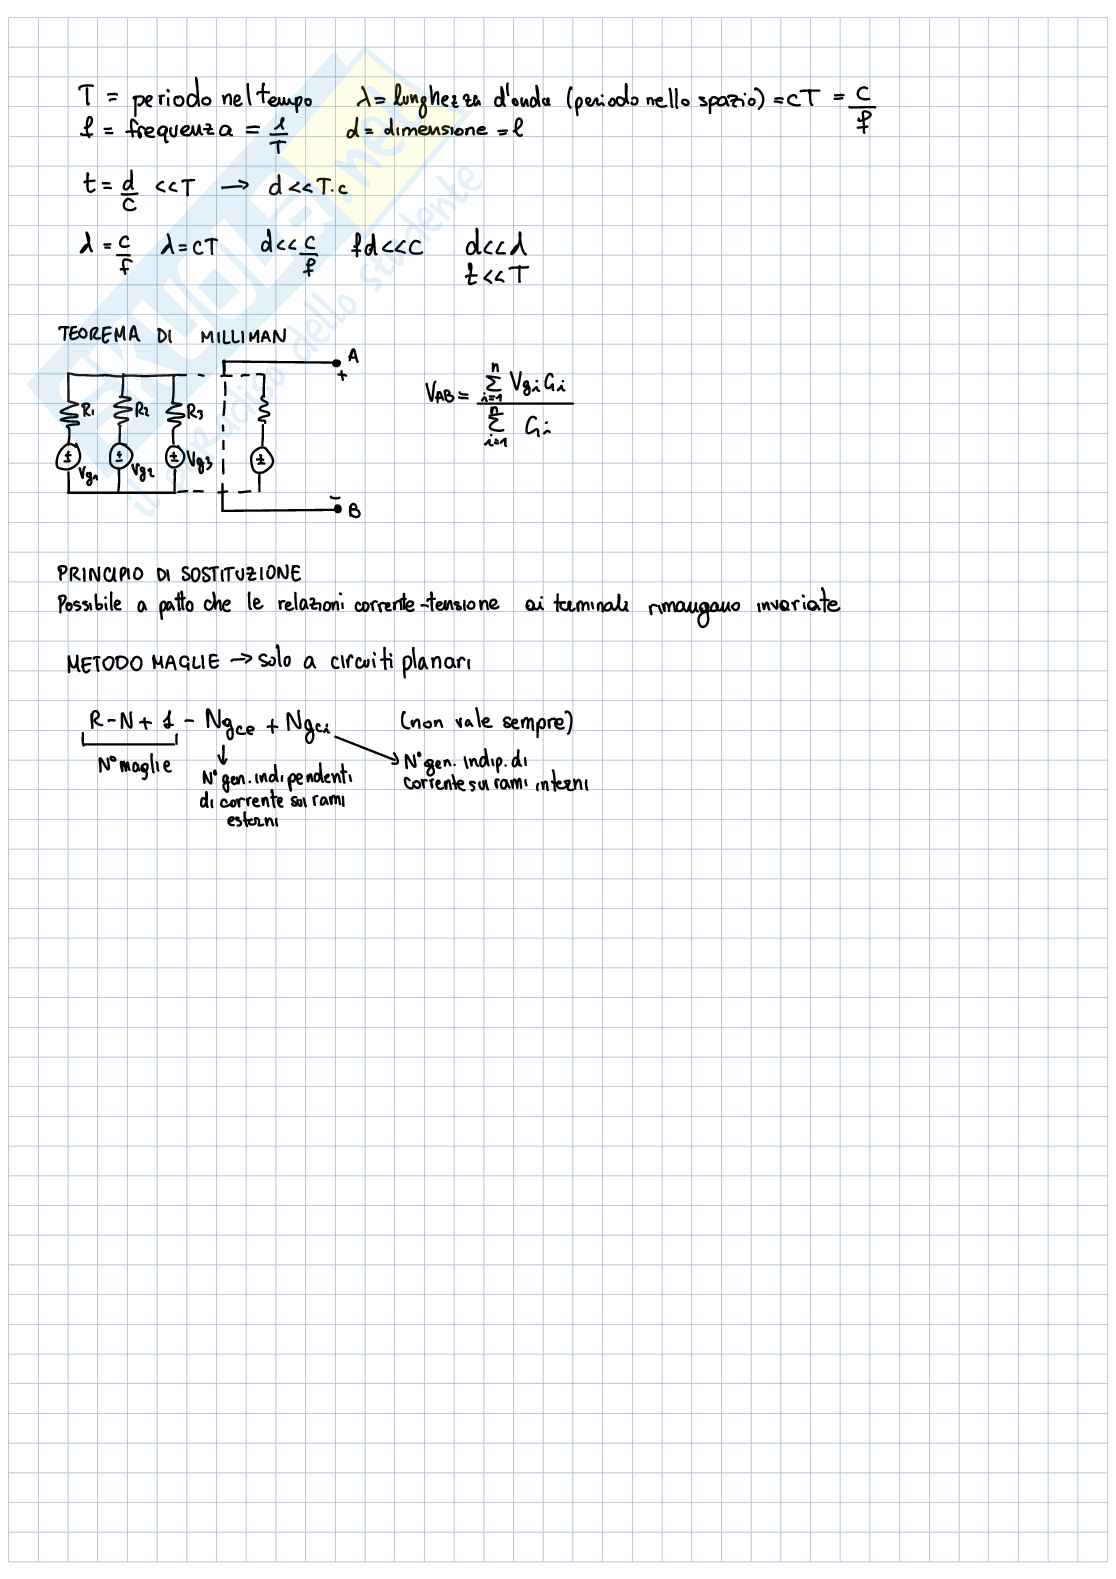 T = periodo nel tempo   λ = lunghezza d'onda (periodo nello spazio) = cT = c/f
f = frequenza = 1/T   d = dimensione = l
t = d/c << T → d << T·c
λ = c/f   λ = cT   d << c/f   fd << c   d << λ
t << T
TEOREMA DI MILLIMAN
A
+
R1 R2 R3
Vg1 Vg2 Vg3
± ± ± ±
-
B
VAB = ∑ i=1 n Vgi Gi / ∑ i=1 n Gi
PRINCIPIO DI SOSTITUZIONE
Possibile a patto che le relazioni corrente-tensione ai terminali rimangano invariate
METODO MAGLIE → solo a circuiti planari
R - N + 1 - Ngce + Ngci   (non vale sempre)
N° maglie
N° gen. indipendenti
di corrente sui rami
esterni
N° gen. indip. di
corrente sui rami interni
SKUOLA.net
il paradiso dello studente